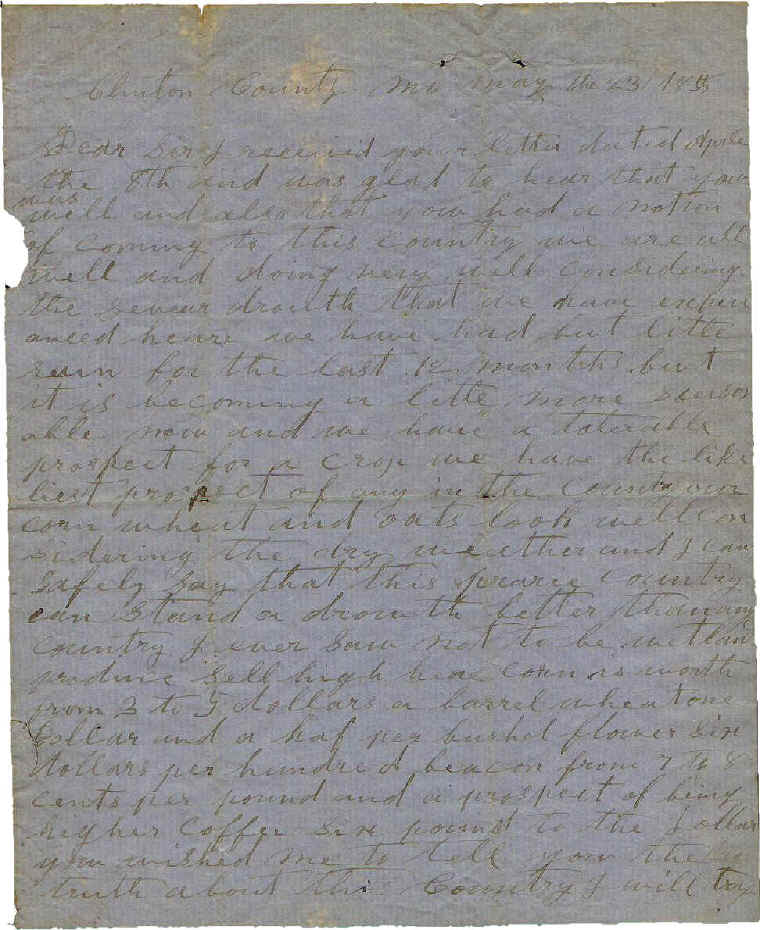 Clinton County Mo May the 23 1855
Dear Sir I received your letter dated Aprile
the 8th and was glad to hear that you
was
well and also that you had a notion
of coming to this country we are all
well and doing very well considering
the sevear drouth that we have experi
anced heare we have had but little
rain for the last 12 months but
it is becoming a little more seasson
able now and we have a tolerable
prospect for a crop we have the like
liest prospect of any in the County our
corn wheat and oats look well con
sidering the dry weether and I can
safely say that this prarie Country
can stand a drouth better than any
country I ever saw not to be wet land
produce sell high hear corn is worth
from 3 to 5 dollars a barrel wheat one
dollar and a haf per bushel flower six
dollars per hundred beacon from 7 to 8
cents per pound and a prospect of being
higher Coffee six pound to the dollar
you wished me to tell you the
truth about this Country I will try